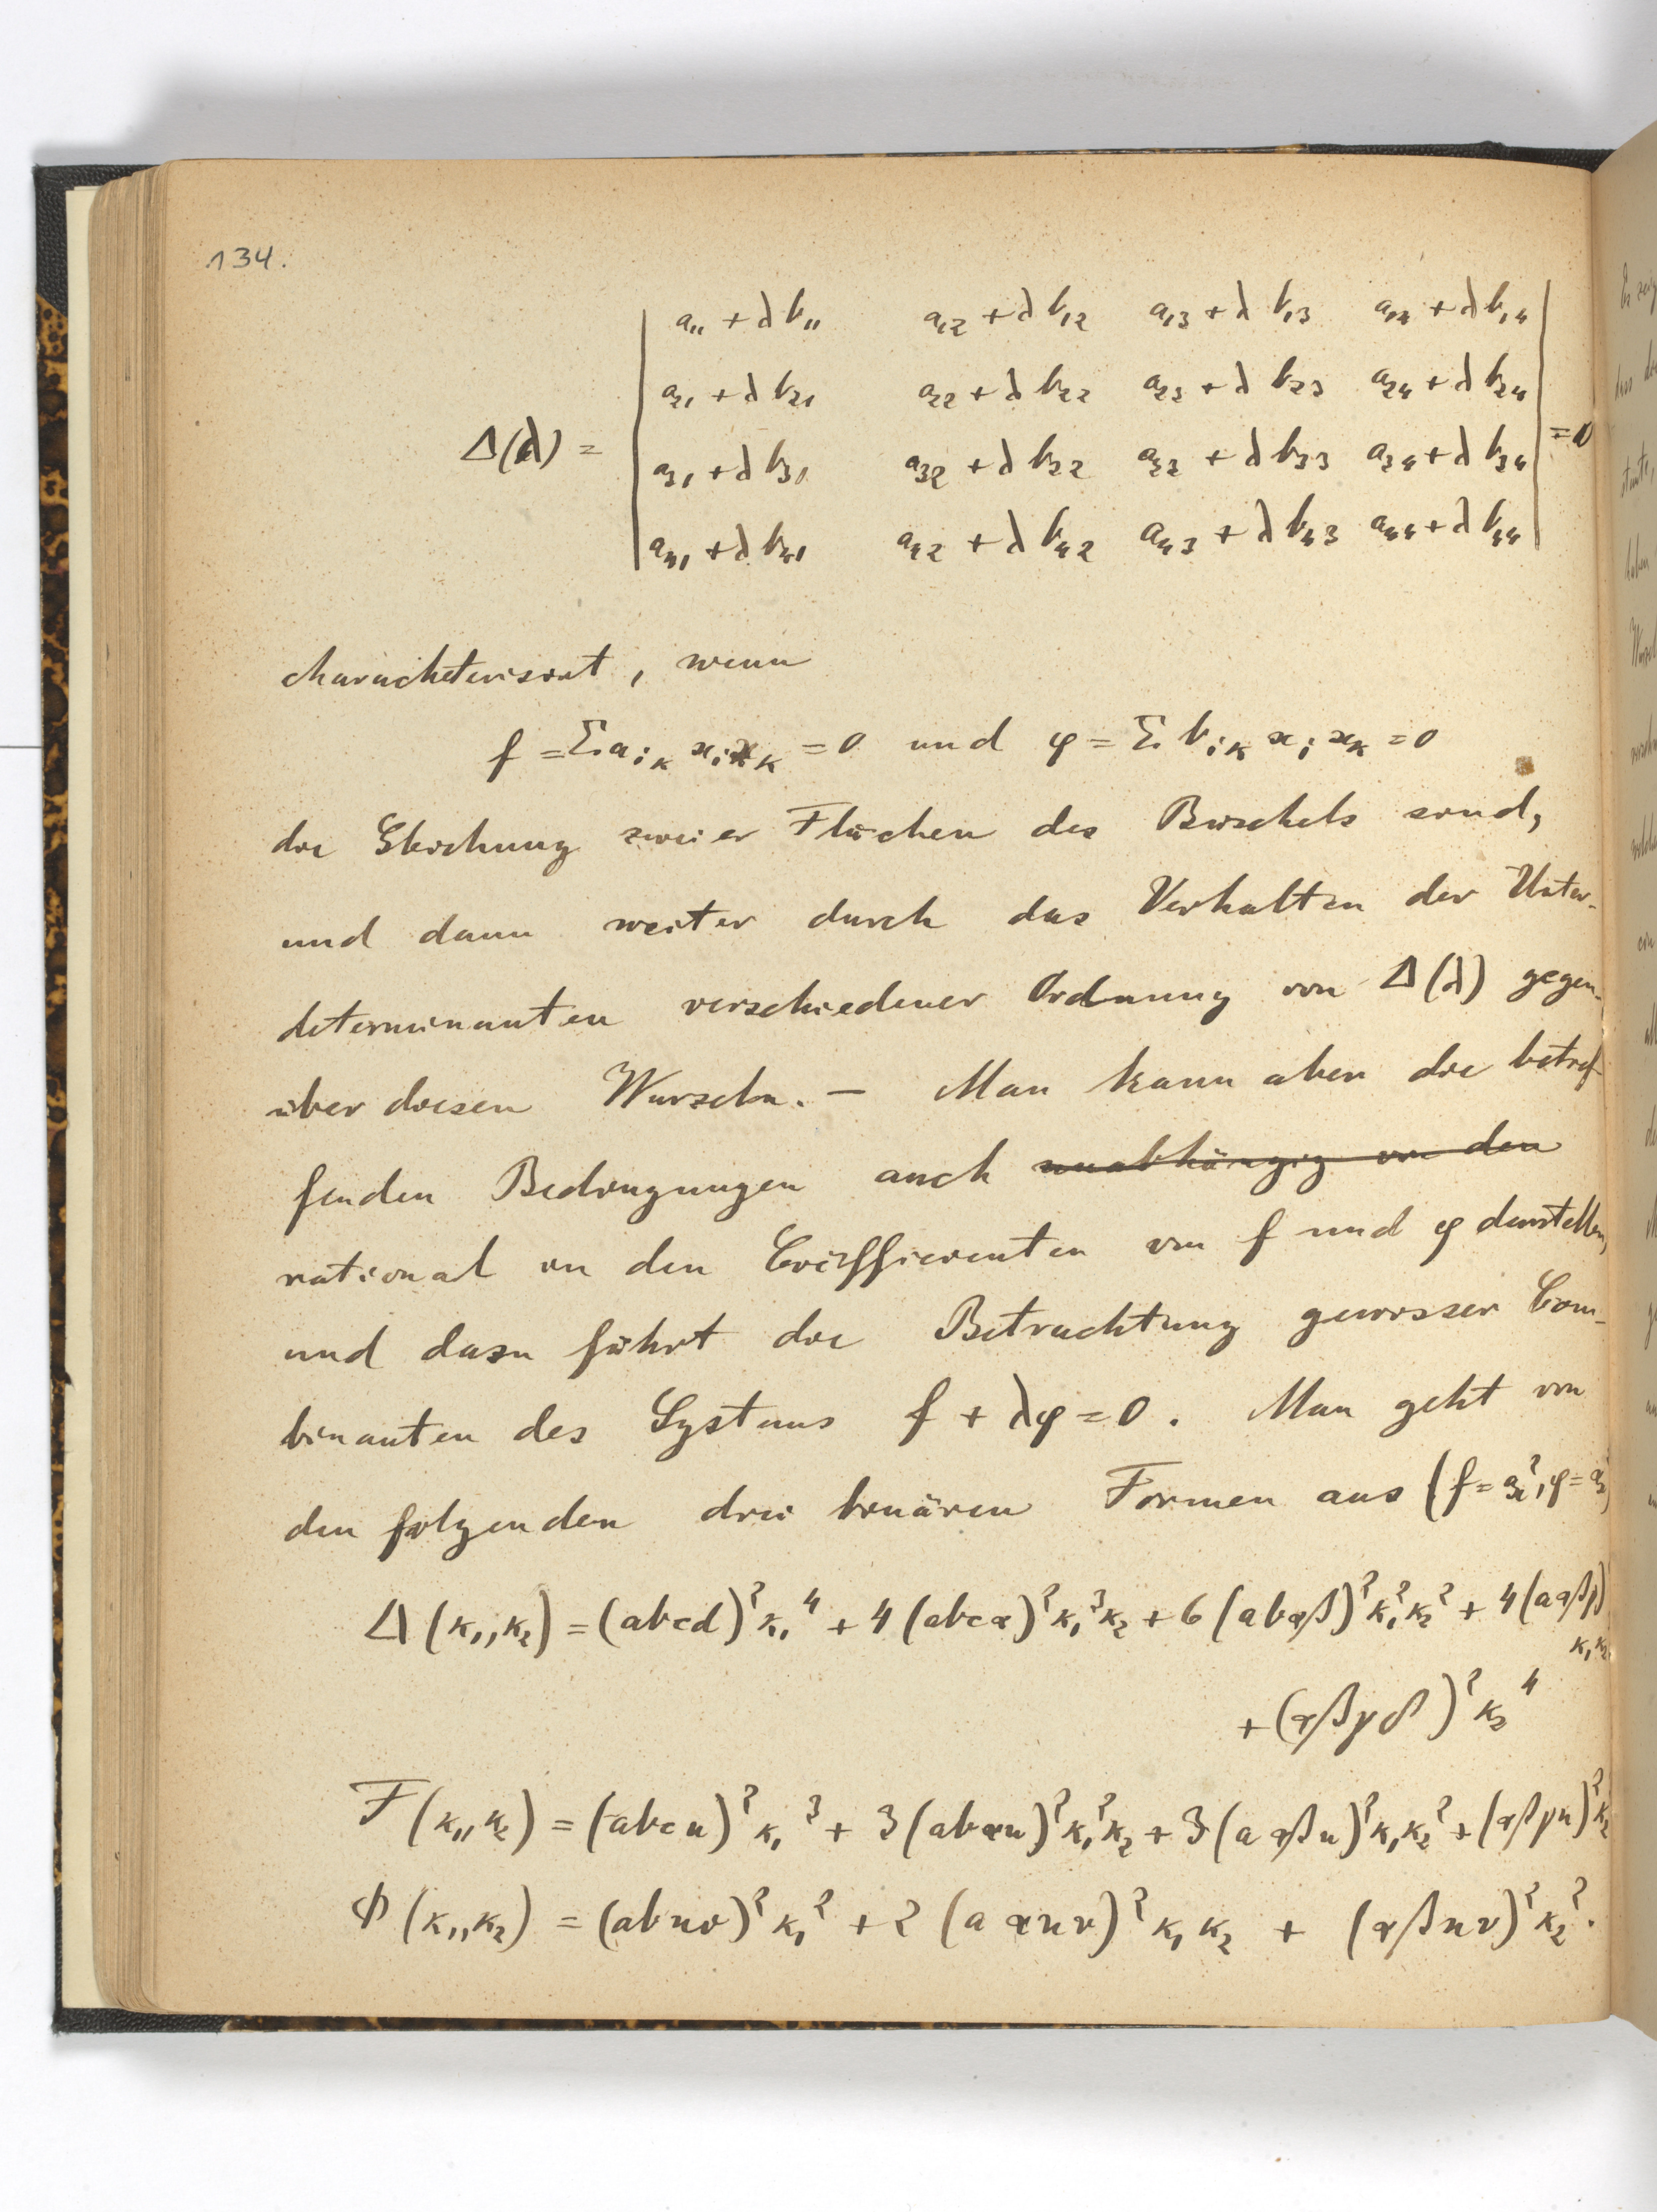 134.
a₁₁ + λb₁₁ a₁₂ + λb₁₂ a₁₃ + λb₁₃ a₁₄ + λb₁₄
a₂₁ + λb₂₁ a₂₂ + λb₂₂ a₂₃ + λb₂₃ a₂₄ + λb₂₄
Δ(λ) = = 0
a₃₁ + λb₃₁ a₃₂ + λb₃₂ a₃₃ + λb₃₃ a₃₄ + λb₃₄
a₄₁ + λb₄₁ a₄₂ + λb₄₂ a₄₃ + λb₄₃ a₄₄ + λb₄₄
charackterisirt, wenn
f = Σ aᵢₖ xᵢ xₖ = 0 und φ = Σ bᵢₖ xᵢ xₖ = 0
die Gleichung zweier Flächen des Büschels sind,
und dann weiter durch das Verhalten der Unter-
determinanten verschiedener Ordnung von Δ(λ) gegen-
über diesen Wurzeln. – Man kann aber die betref-
fenden Bedingungen auch unabhängig von den
rational in den Coëfficienten von f und φ darstellen,
und dazu führt die Betrachtung gewisser Com-
binanten des Systems f + λφ = 0. Man geht von
den folgenden drei binären Formen aus (f = aₓ², φ = αₓ²)
Δ(κ₁,κ₂) = (abcd)²κ₁⁴ + 4(abcα)²κ₁³κ₂ + 6(abαβ)²κ₁²κ₂² + 4(aαβγ)
κ₁κ₂
+ (αβγδ)²κ₂⁴
F(κ₁,κ₂) = (abcu)²κ₁³ + 3(abαu)²κ₁²κ₂ + 3(aαβu)²κ₁κ₂² + (αβγu)²κ₂
Φ(κ₁,κ₂) = (abuv)²κ₁² + 2(aαuv)²κ₁κ₂ + (αβuv)²κ₂².